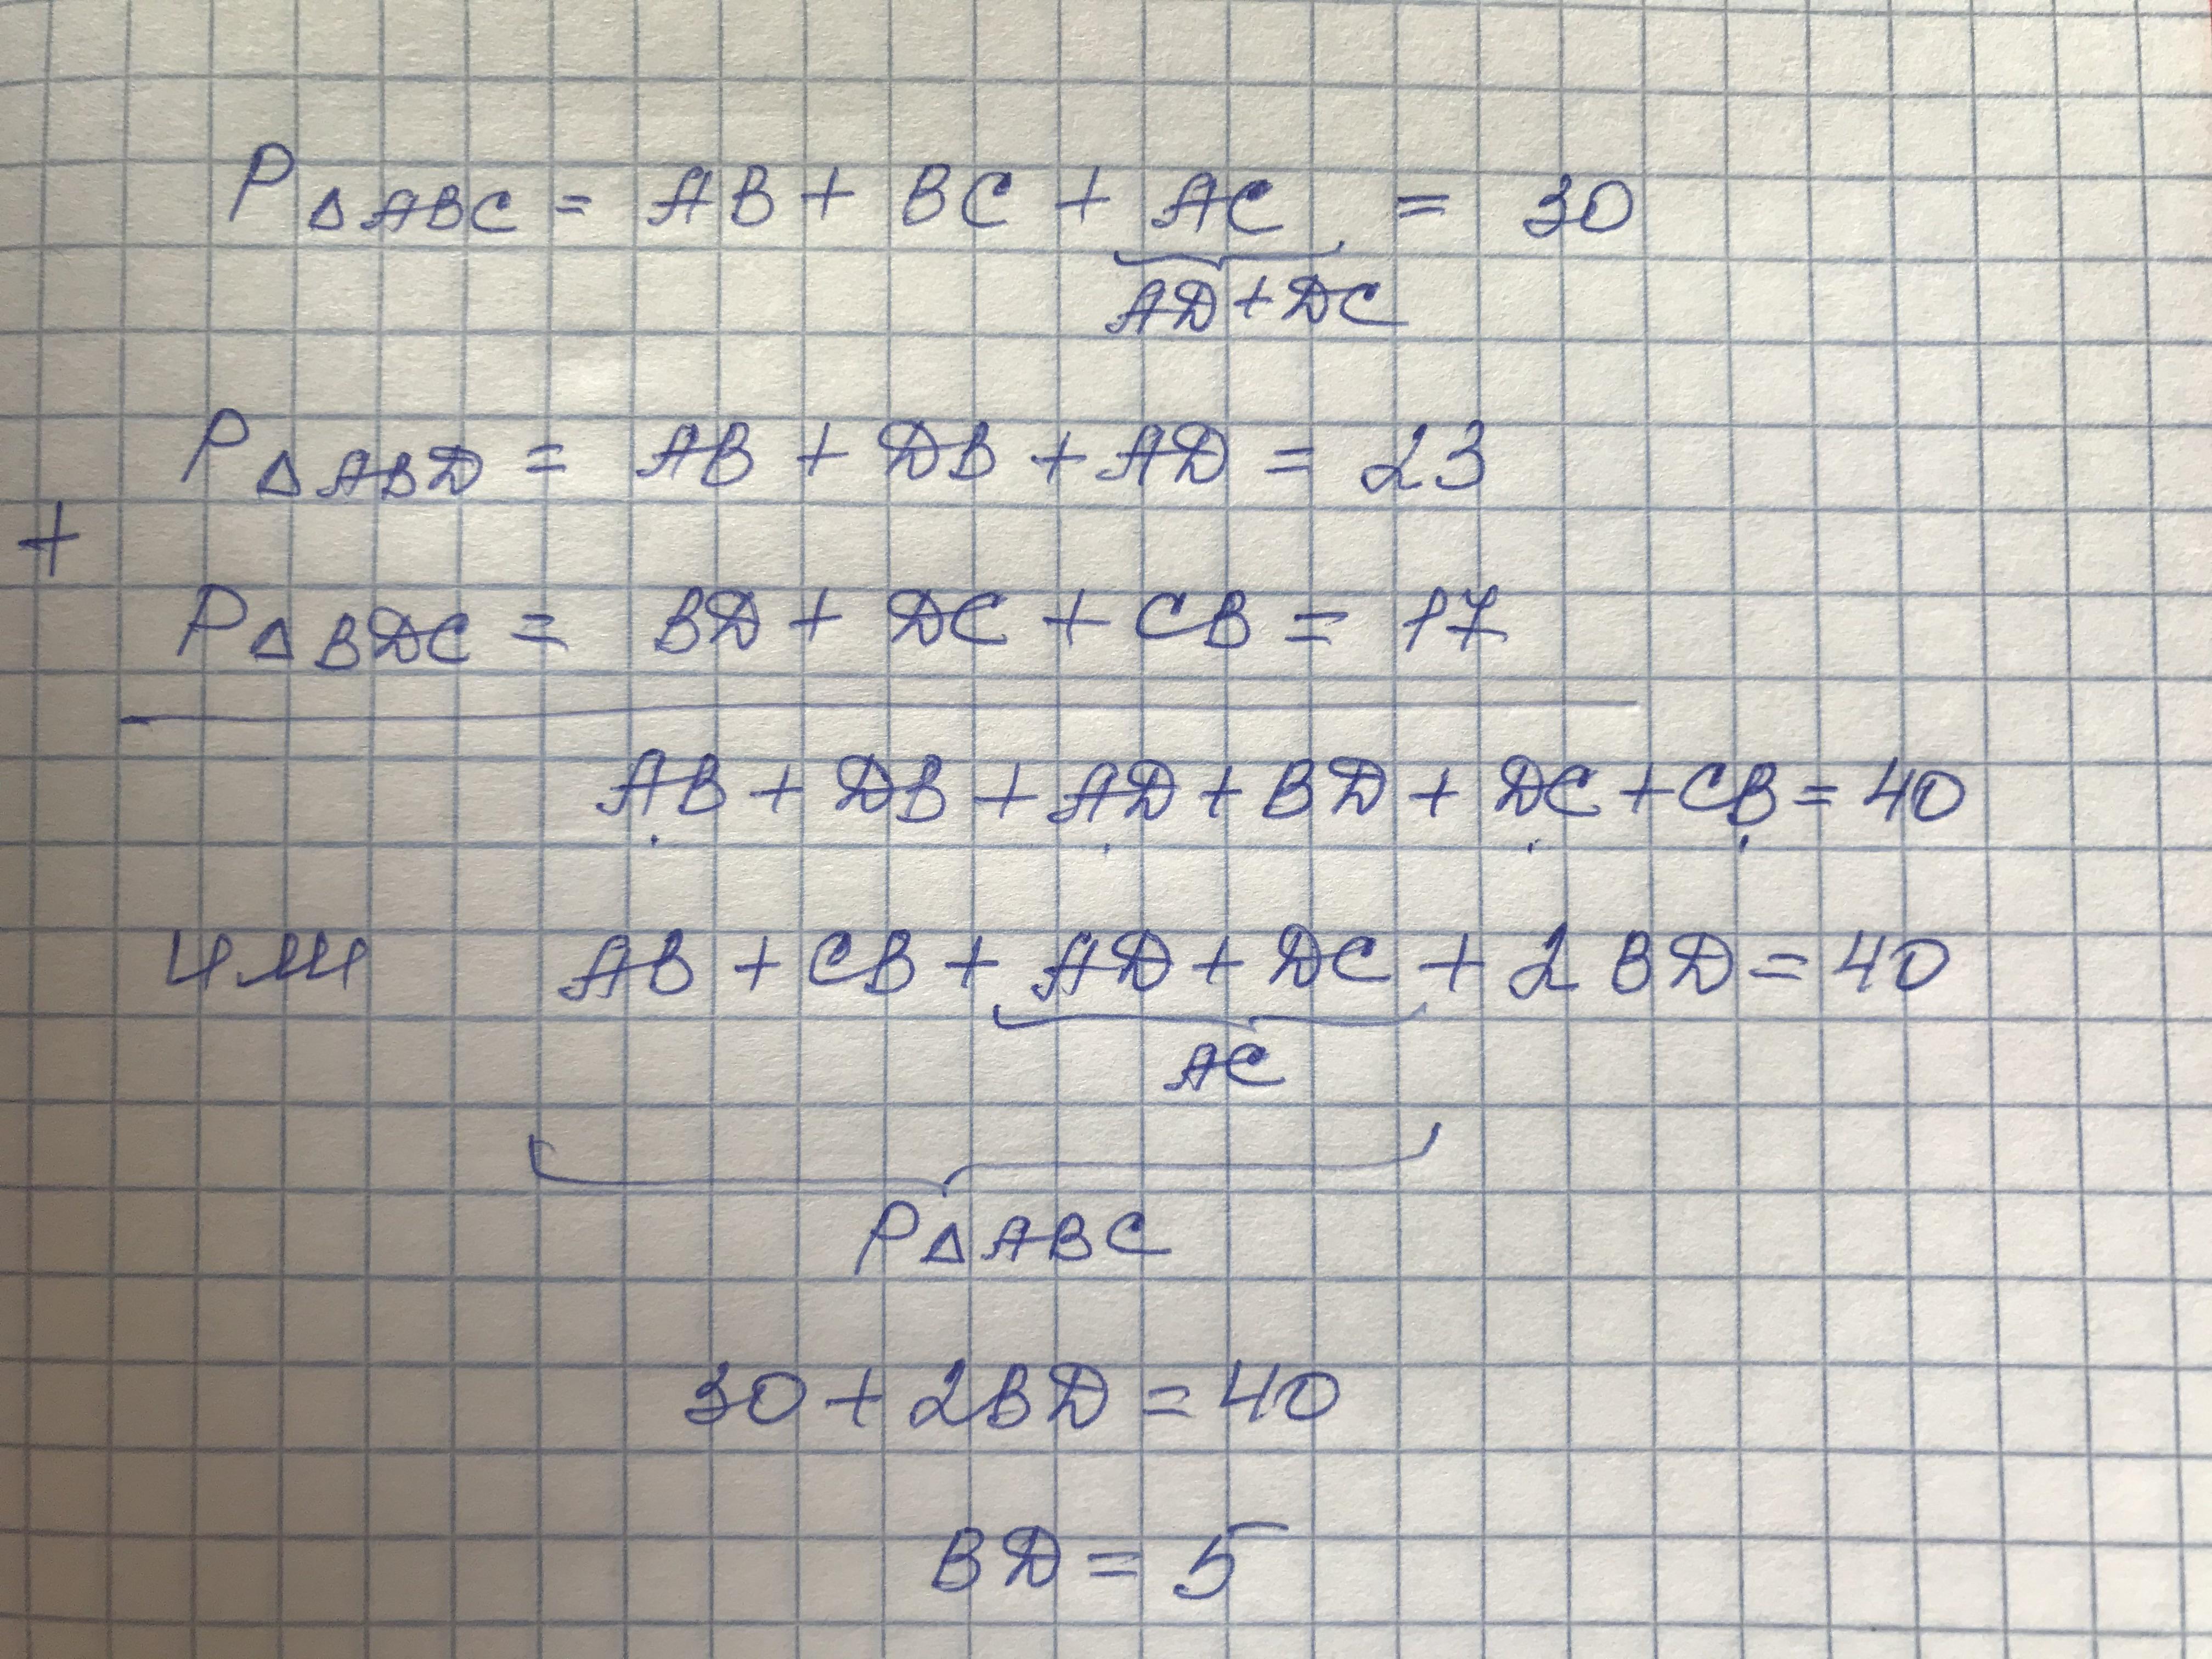 P△ABC = AB + BC + AC = 30
AD + DC
P△ABD = AB + DB + AD = 23
+
P△BDC = BD + DC + CB = 17
AB + DB + AD + BD + DC + CB = 40
или AB + CB + AD + DC + 2 BD = 40
AC
P△ABC
30 + 2BD = 40
BD = 5